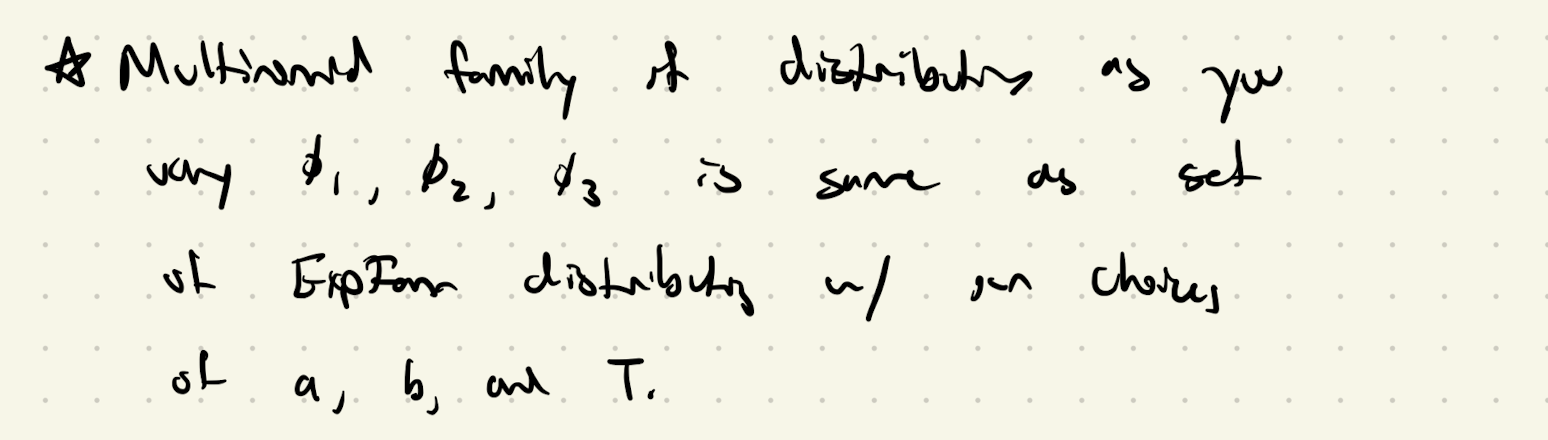 ☆ Multinomial family of distributions as you
vary ϕ₁, ϕ₂, ϕ₃ is same as set
of ExpFam distributions w/ choices
of a, b, and T.